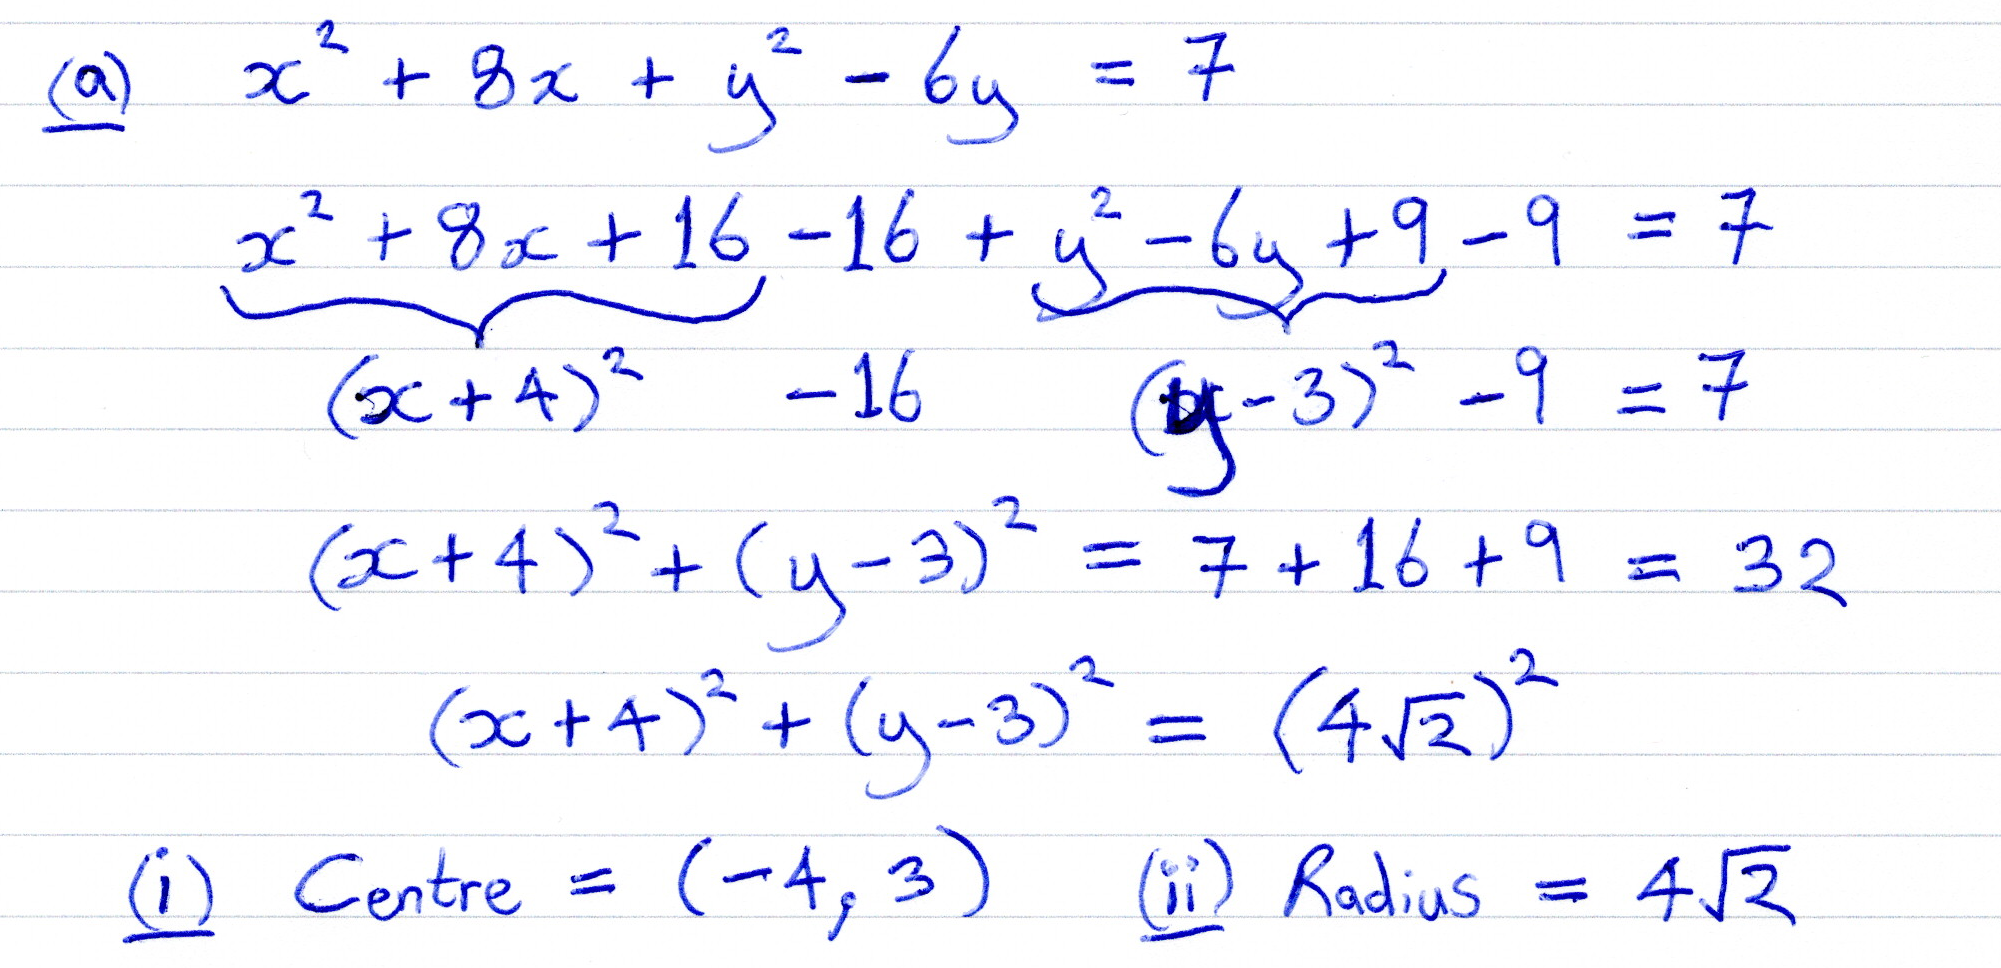 (a) x² + 8x + y² - 6y = 7
x² + 8x + 16 - 16 + y² - 6y + 9 - 9 = 7
(x + 4)² - 16 (y - 3)² - 9 = 7
(x + 4)² + (y - 3)² = 7 + 16 + 9 = 32
(x + 4)² + (y - 3)² = (4√2)²
(i) Centre = (-4, 3) (ii) Radius = 4√2